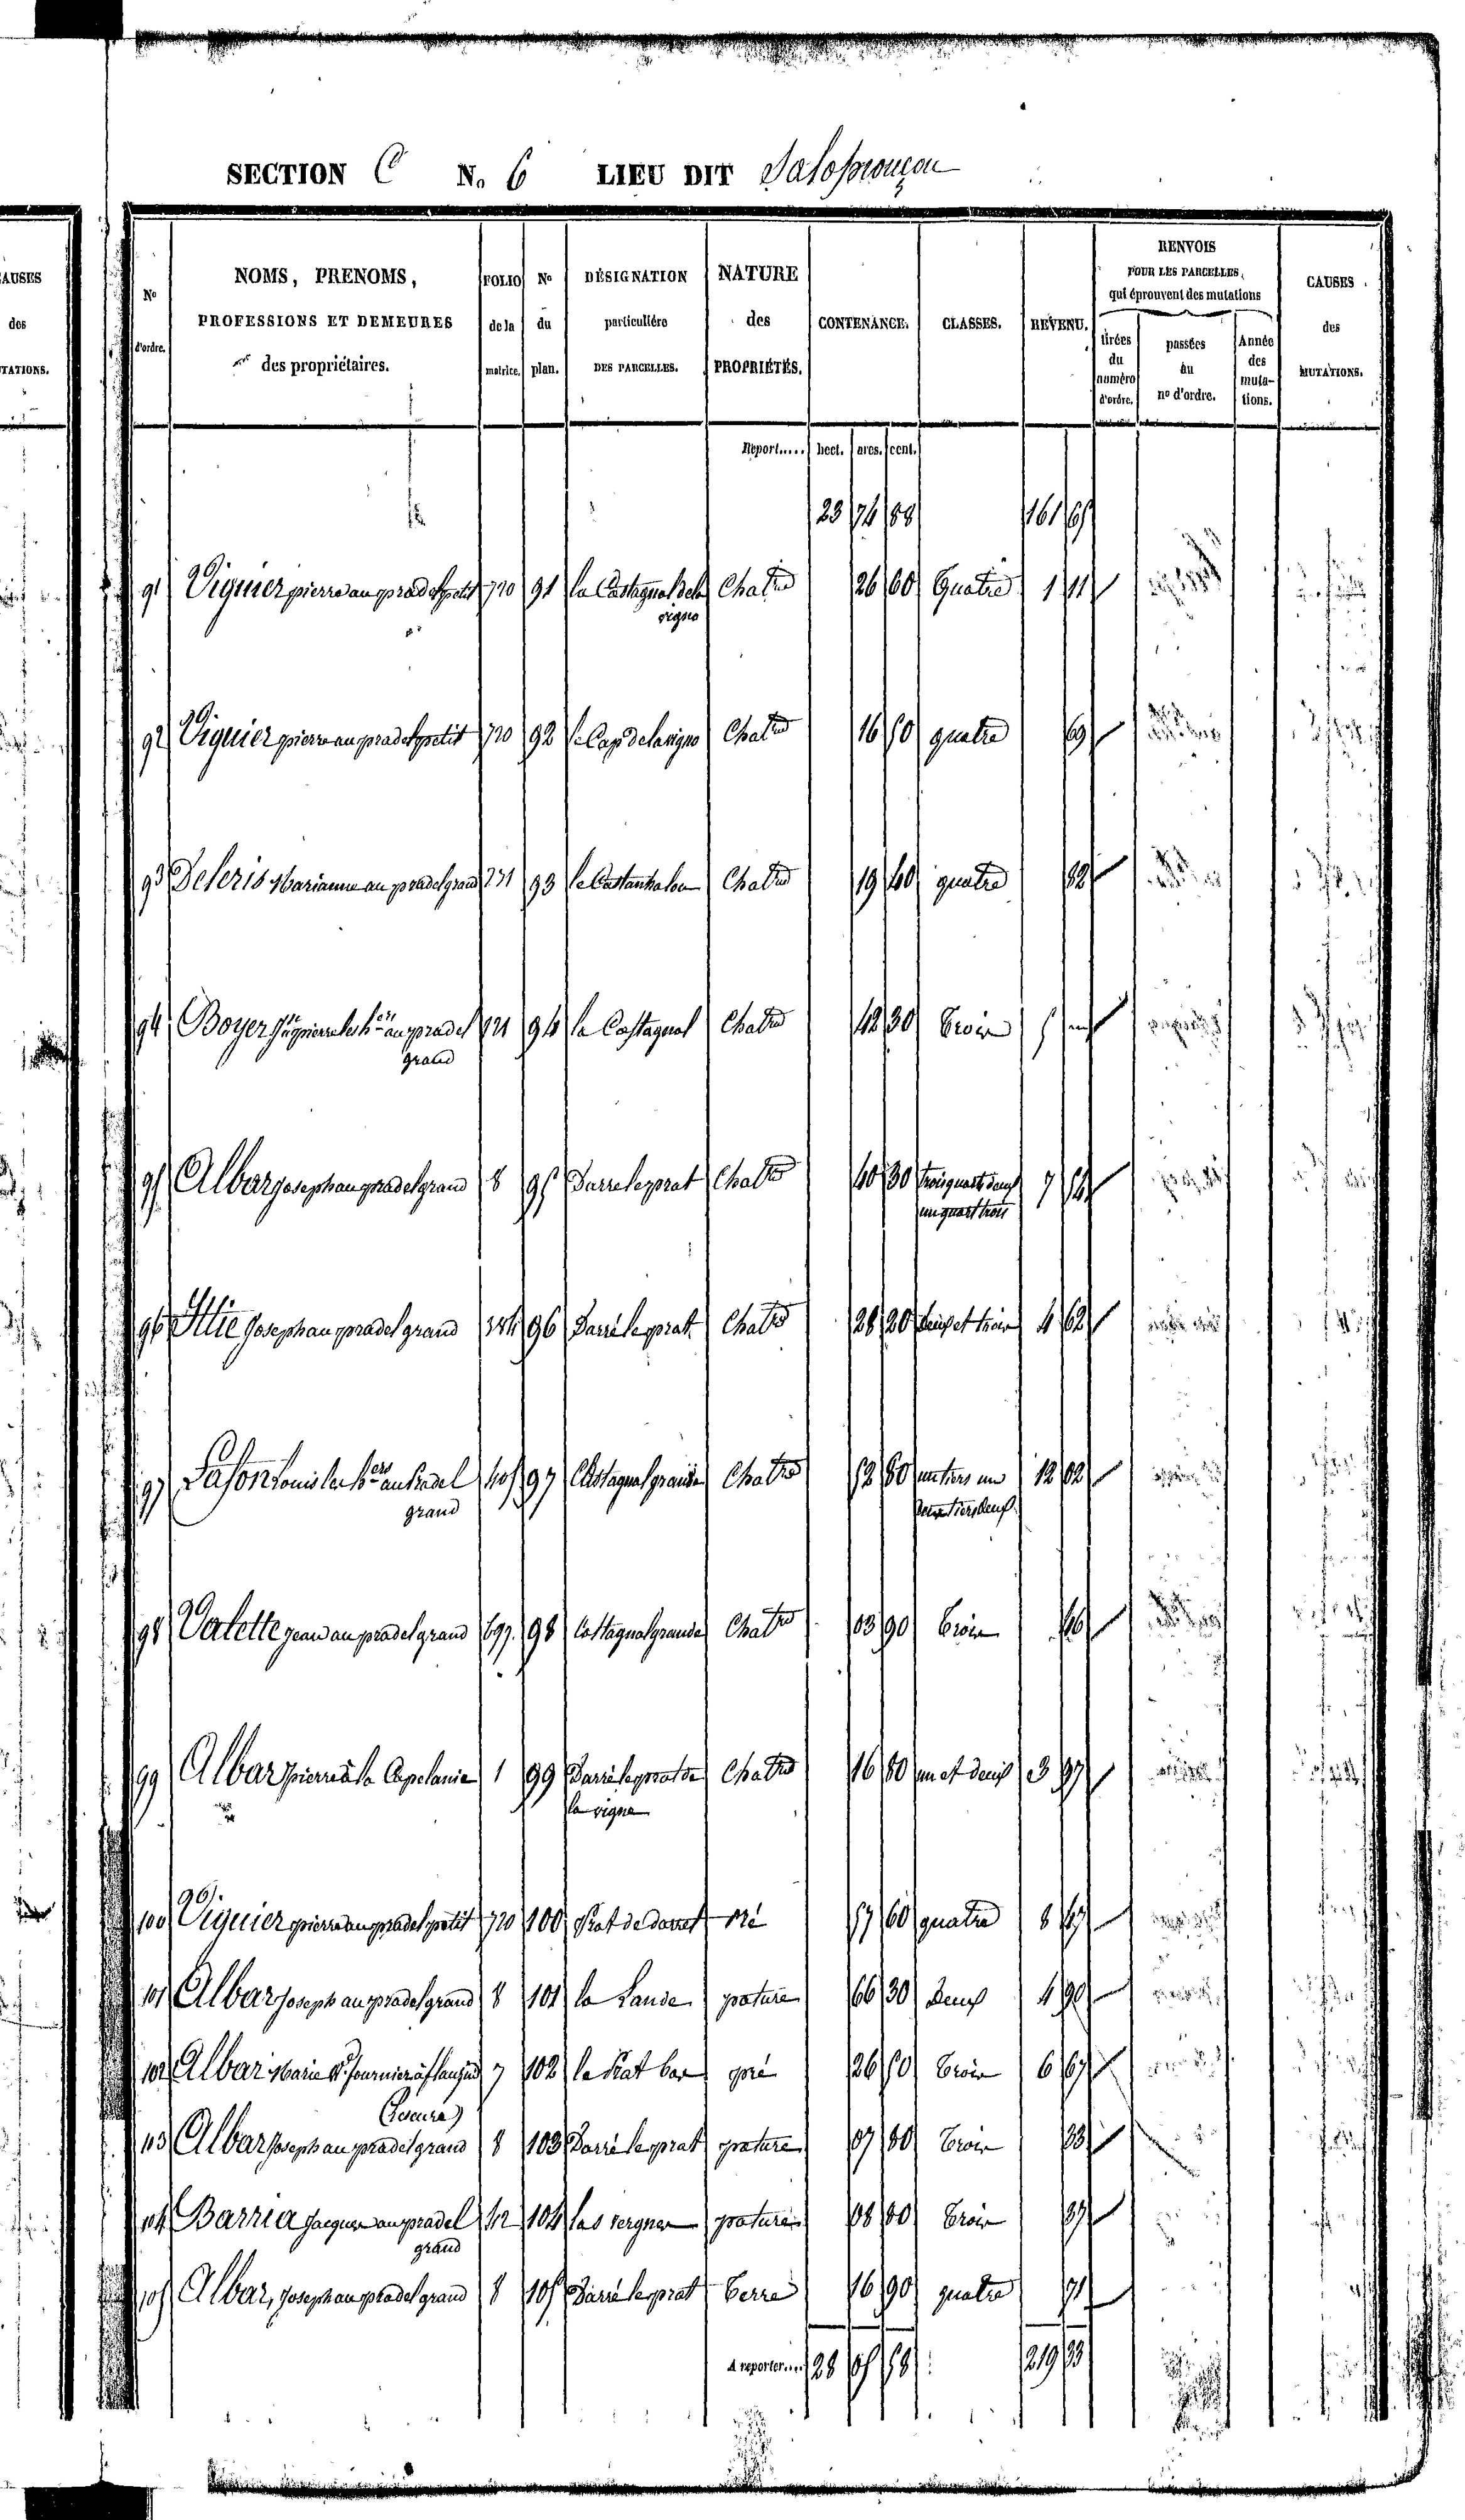 SECTION C N. 6 LIEU DIT
AUSES
des
TATIONS.
No
d'ordre.
NOMS, PRENOMS,
PROFESSIONS ET DEMEURES
des propriétaires.
FOLIO
de la
matrice.
No
du
plan.
DÉSIGNATION
particulière
DES PARCELLES.
NATURE
des
PROPRIÉTÉS.
CONTENANCE.
CLASSES.
REVENU.
RENVOIS
POUR LES PARCELLES,
qui éprouvent des mutations
tirées
du
numéro
d'ordre.
passées
au
no d'ordre.
Année
des
muta-
tions.
CAUSES
des
MUTATIONS.
Report..... hect. ares. cent.
23 74 88 161
91 Viguier pierre au pradel petit 720 91 la Castagnal dela Chatre 26 60 Quatre 1 11
vigne
92 Viguier pierre au pradel petit 720 92 le Cap de la vigne Chatre 16 50 quatre 69
93 Deleris Marianne au pradel grand 231 93 Chatre 19 40 quatre 82
94 Boyer au pradel 121 94 la Castagnal Chatre 42 30 trois 5
grand
95 Albar Joseph au pradel grand 8 95 Darré le prat Chatre 40 30 trois quart deux 7
un quart trois
96 Joseph au pradel grand 96 Darré le prat Chatre 28 20 deux et trois 4 62
97 Louis les hers au Pradel 405 97 Castagnal grande Chatre 52 60 un tiers un 12 02
grand deux tiers deux
98 Valette Jean au pradel grand 697 98 Castagnal grande Chatre 03 90 trois 46
99 Albar pierre à la Capelanie 1 99 Darré le prat de Chatre 16 80 un et deux 3 97
la vigne
100 Viguier pierre au pradel petit 720 100 Prat de pré 57 60 quatre 8
101 Albar Joseph au pradel grand 8 101 la Lande pature 66 30 deux 4 90
102 Albar Marie 7 102 le Prat bas pré 26 50 trois 6 67
103 Albar Joseph au pradel grand 8 103 Darré le prat pature 07 80 trois 33
104 Barria Jacques au pradel 42 104 las vergnes pature 08 80 trois 37
grand
105 Albar, Joseph au pradel grand 8 105 Darré le prat terre 16 90 quatre 71
A reporter.... 28 219 33